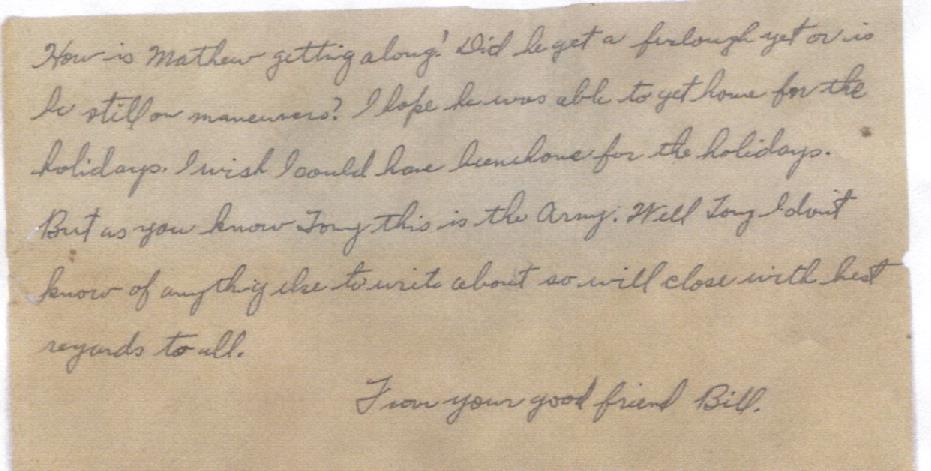 How is Mathew getting along? Did he get a furlough yet or is
he still on maneuvers? I hope he was able to get home for the
holidays. I wish I could have been home for the holidays.
But as you know Tony this is the Army. Well Tony I don't
know of anything else to write about so will close with best
regards to all.
From your good friend Bill.